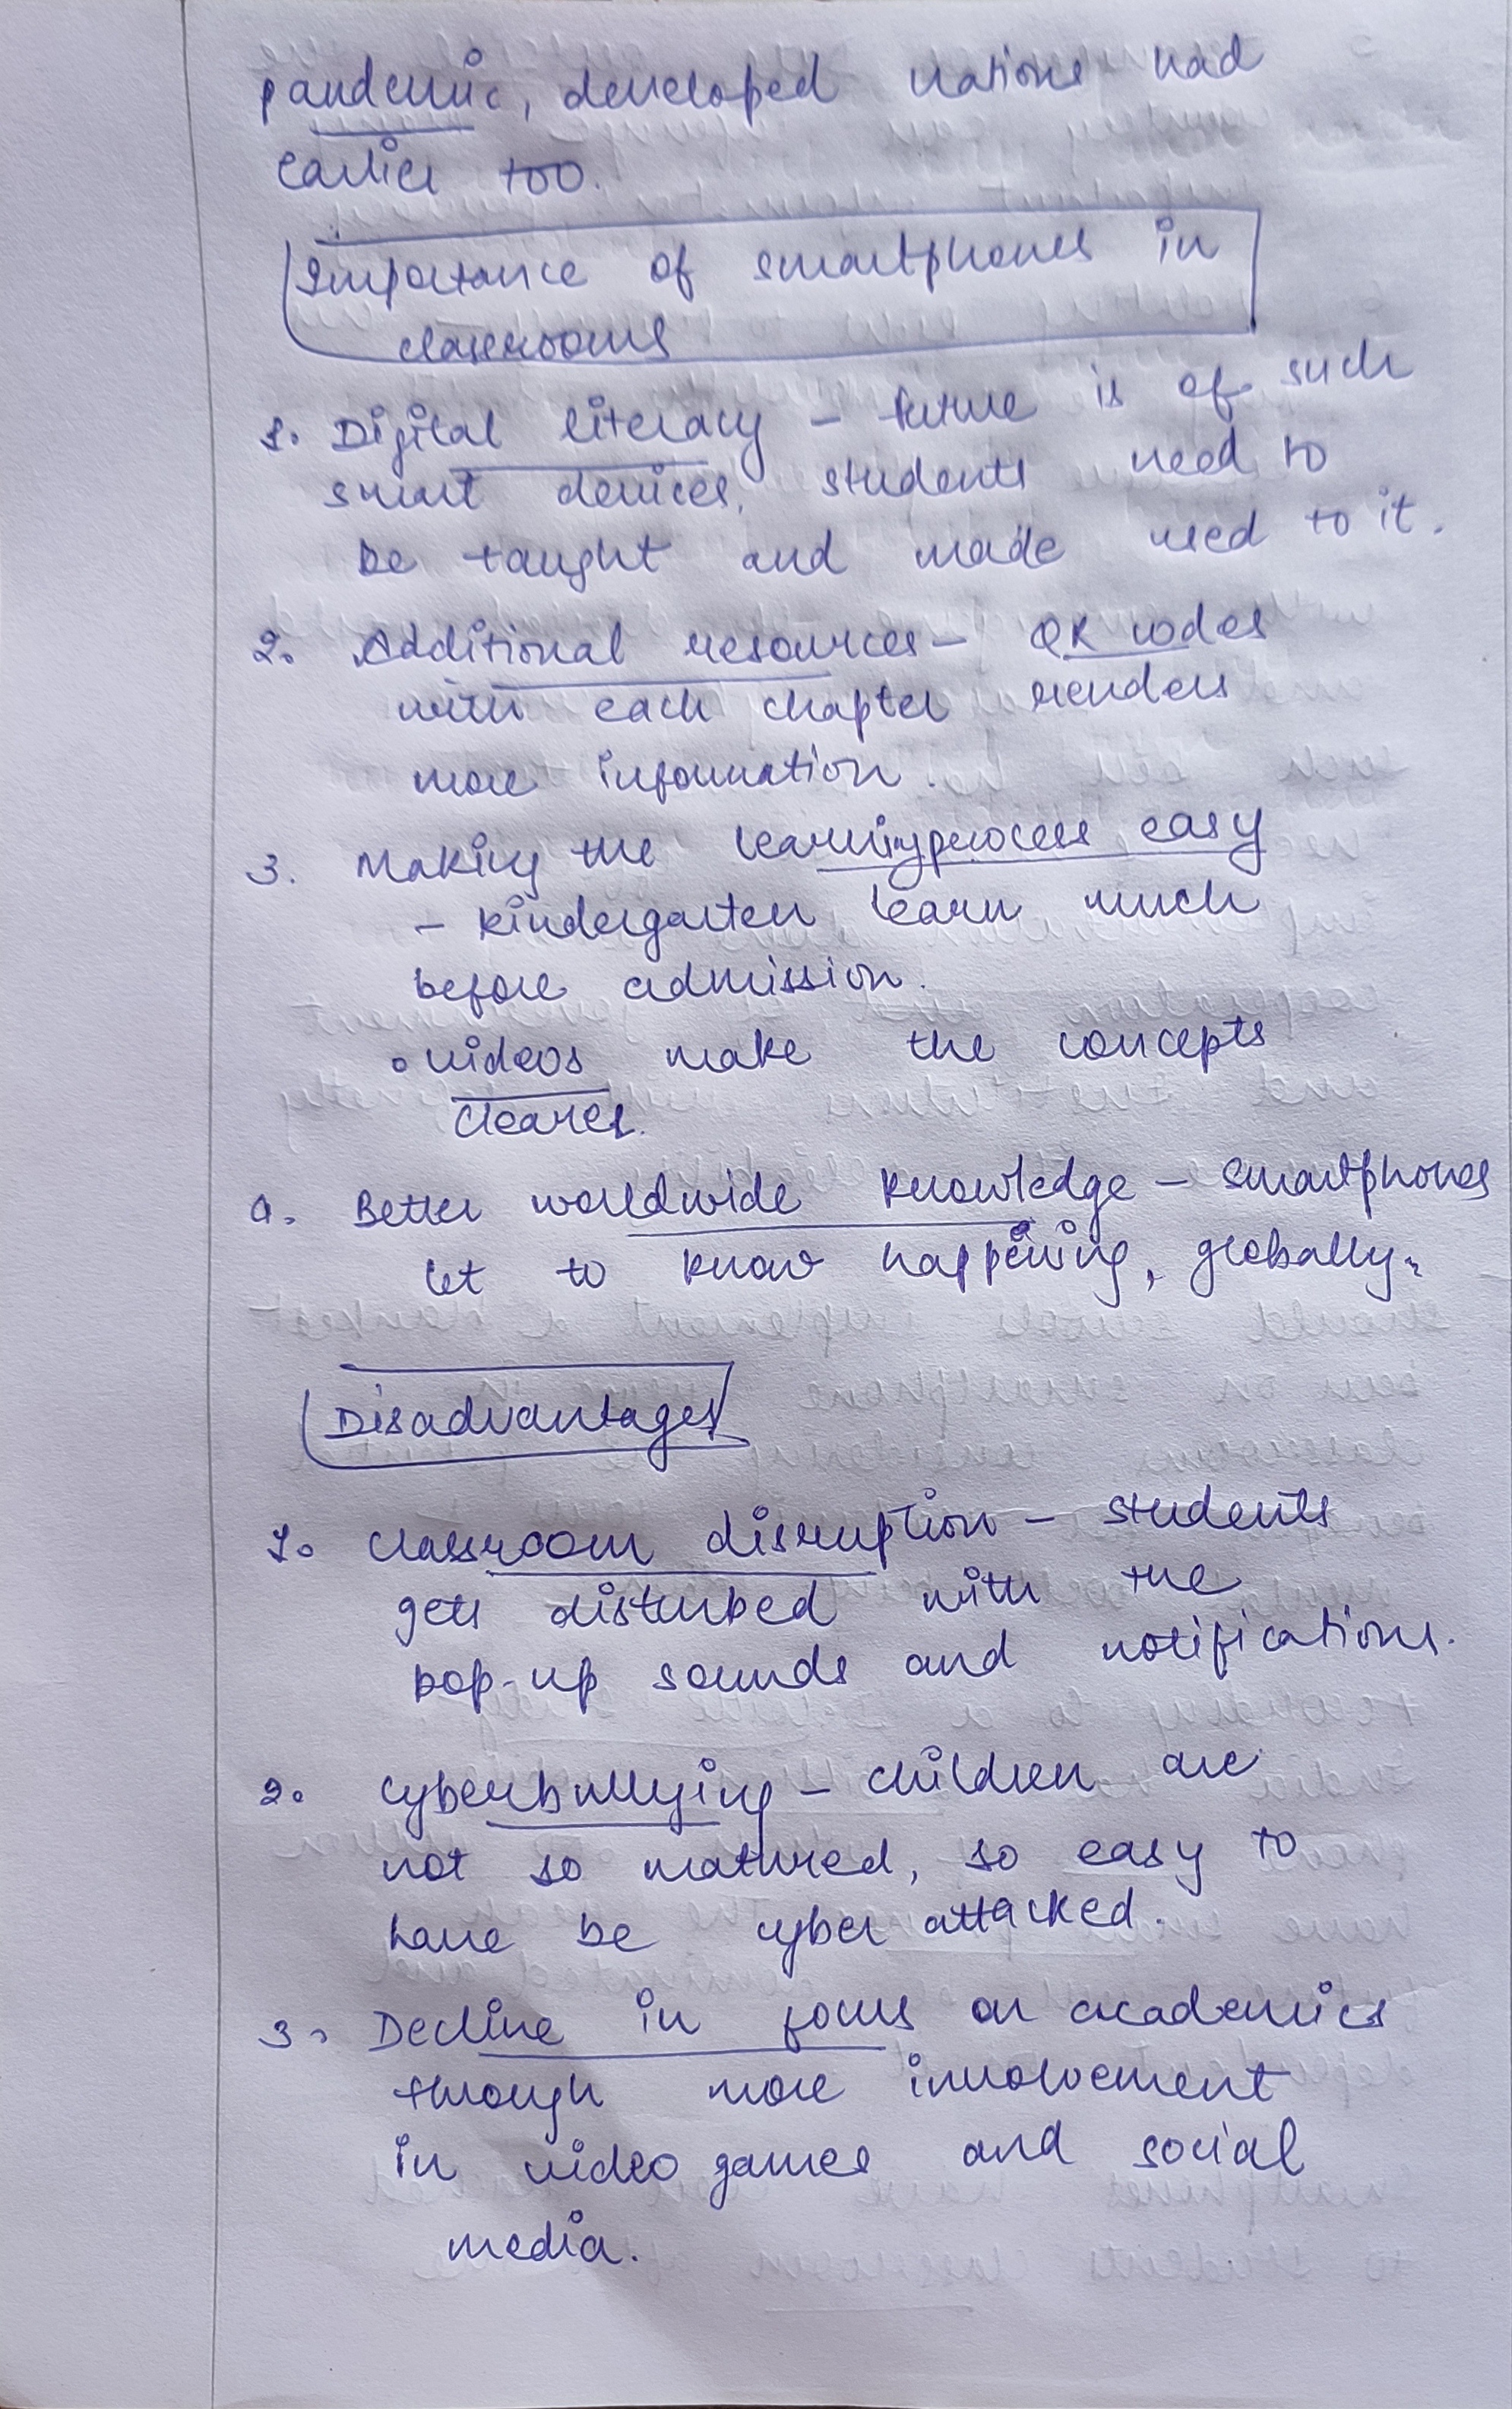 pandemic, developed nations had
earlier too.
Importance of smartphones in
classrooms
1. Digital literacy - future is of such
smart devices, students need to
be taught and made used to it.
2. Additional resources - QR codes
with each chapter renders
more information.
3. Making the learning process easy
- kindergarten learn much
before admission.
• videos make the concepts
clearer.
4. Better worldwide knowledge - smartphones
let to know happening, globally.
Disadvantages
1. Classroom disruption - students
gets disturbed with the
pop-up sounds and notifications.
2. Cyberbullying - children are
not so matured, so easy to
have be cyber attacked.
3. Decline in focus on academics
through more involvement
in video games and social
media.